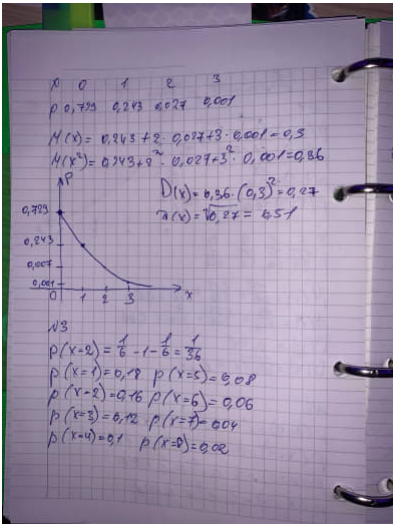 x 0 1 2 3
p 0,729 0,243 0,027 0,001
M(x) = 0,243+2·0,027+3·0,001=0,3
M(x²)=0,243+2²·0,027+3²·0,001=0,36
D(x)=0,36-(0,3)²=0,27
(x)=√0,27=0,51
p
0,729
0,243
0,007
0,001
0 1 2 3 x
N3
p(x=2)=1/6-1-1/6=1/36
p(x=1)=0,18 p(x=5)=0,08
p(x=2)=0,16 p(x=6)=0,06
p(x=3)=0,12 p(x=7)=0,04
p(x=4)=0,1 p(x=8)=0,02